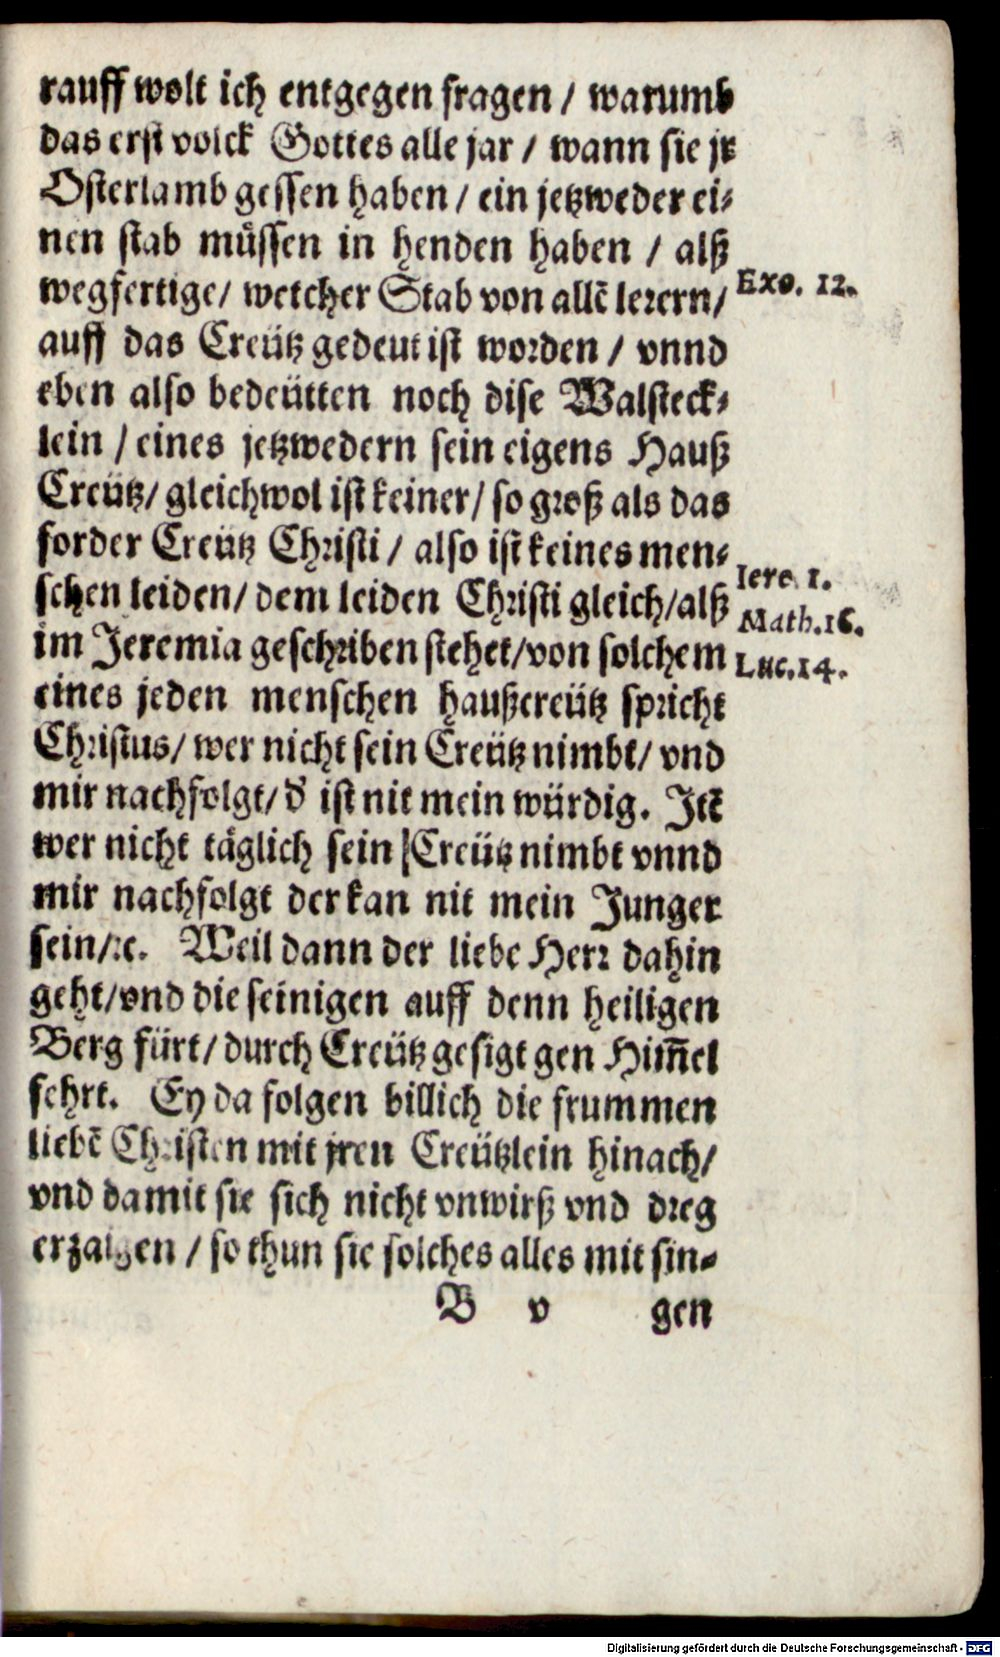 rauff wolt ich entgegen fragen / warumb
das erst volck Gottes alle jar / wann sie jr
Osterlamb gessen haben / ein jetzweder ei⸗
nen stab müssen in henden haben / alß
wegfertige / welcher Stab von allē lerern /
Exo. 12.
auff das Creütz gedeut ist worden / vnnd
eben also bedeütten noch dise Walsteck⸗
lein / eines jetzwedern sein eigens Hauß
Creütz / gleichwol ist keiner / so groß als das
forder Creütz Christi / also ist keines men⸗
schen leiden / dem leiden Christi gleich / alß
Iere. 1.
Math. 16.
im Jeremia geschriben stehet / von solchem
Luc. 14.
eines jeden menschen haußcreütz spricht
Christus / wer nicht sein Creütz nimbt / vnd
mir nachfolgt / d̄ ist nit mein würdig. Itē
wer nicht täglich sein Creütz nimbt vnnd
mir nachfolgt der kan nit mein Junger
sein / ꝛc. Weil dann der liebe Herr dahin
geht / vnd die seinigen auff denn heiligen
Berg fürt / durch Creütz gesigt gen Him̄el
fehrt. Ey da folgen billich die frummen
liebē Christen mit jren Creützlein hinach /
vnd damit sie sich nicht vnwirß vnd dreg
erzaigen / so thun sie solches alles mit sin⸗
B v gen
Digitalisierung gefördert durch die Deutsche Forschungsgemeinschaft - DFG